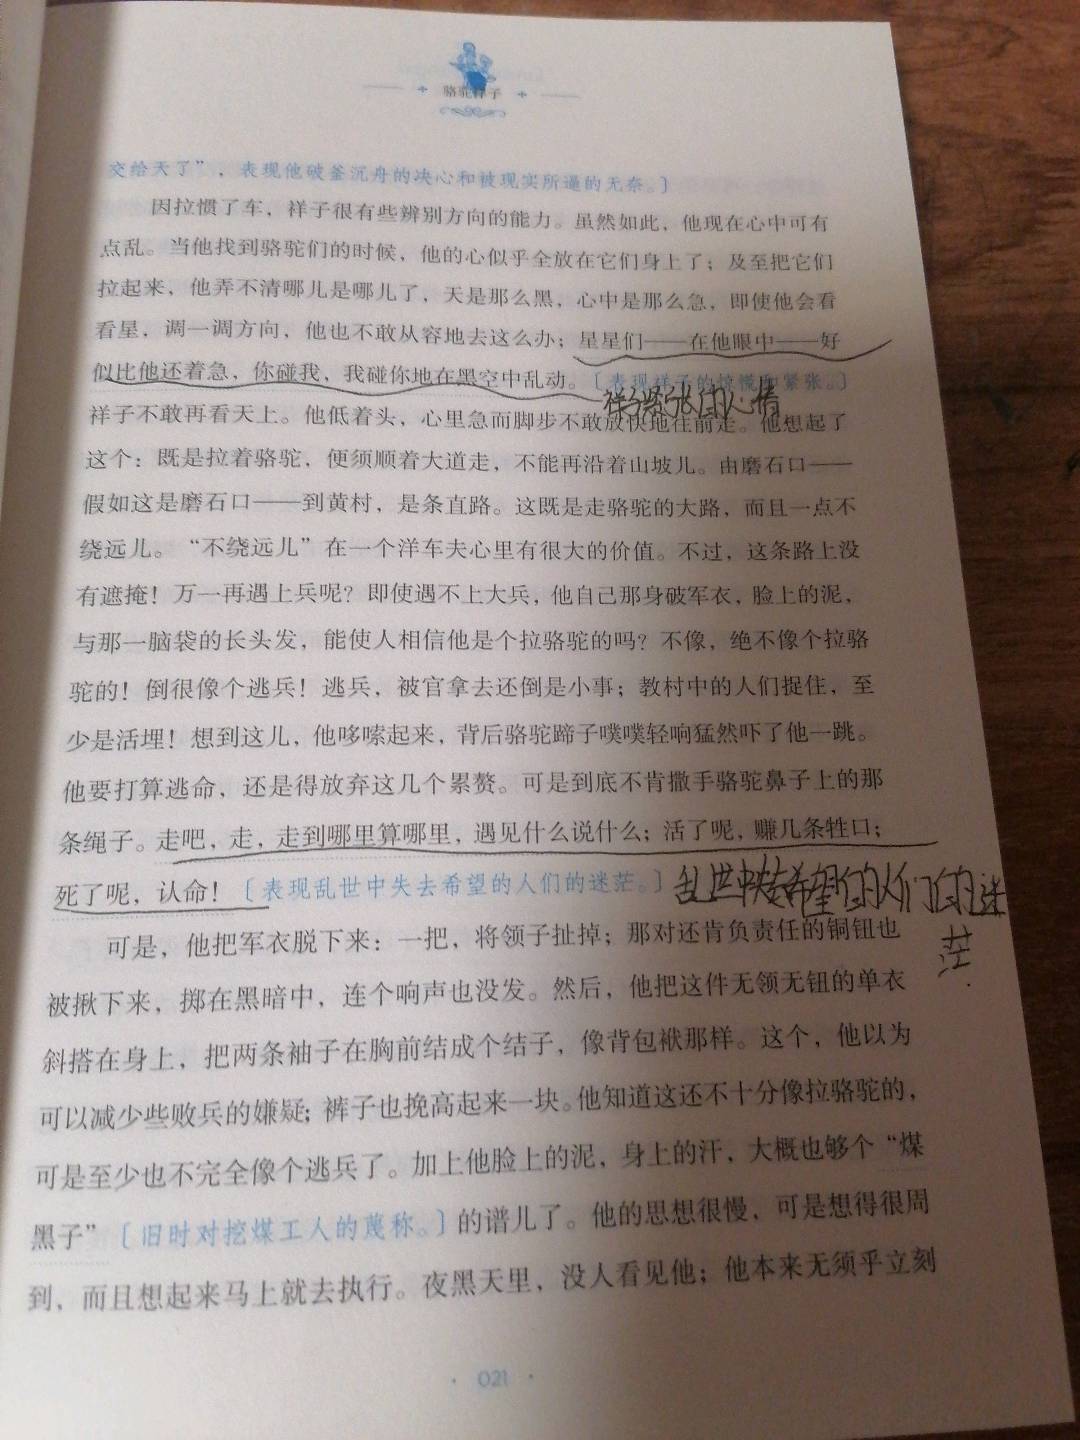 骆驼祥子
交给天了”，表现他破釜沉舟的决心和被现实所逼的无奈。］
因拉惯了车，祥子很有些辨别方向的能力。虽然如此，他现在心中可有
点乱。当他找到骆驼们的时候，他的心似乎全放在它们身上了；及至把它们
拉起来，他弄不清哪儿是哪儿了，天是那么黑，心中是那么急，即使他会看
看星，调一调方向，他也不敢从容地去这么办；星星们——在他眼中——好
似比他还着急，你碰我，我碰你地在黑空中乱动。［表现祥子的惊慌和紧张。］
祥子紧张的心情
祥子不敢再看天上。他低着头，心里急而脚步不敢放快地往前走。他想起了
这个：既是拉着骆驼，便须顺着大道走，不能再沿着山坡儿。由磨石口——
假如这是磨石口——到黄村，是条直路。这既是走骆驼的大路，而且一点不
绕远儿。“不绕远儿”在一个洋车夫心里有很大的价值。不过，这条路上没
有遮掩！万一再遇上兵呢？即使遇不上大兵，他自己那身破军衣，脸上的泥，
与那一脑袋的长头发，能使人相信他是个拉骆驼的吗？不像，绝不像个拉骆
驼的！倒很像个逃兵！逃兵，被官拿去还倒是小事；教村中的人们捉住，至
少是活埋！想到这儿，他哆嗦起来，背后骆驼蹄子噗噗轻响猛然吓了他一跳。
他要打算逃命，还是得放弃这几个累赘。可是到底不肯撒手骆驼鼻子上的那
条绳子。走吧，走，走到哪里算哪里，遇见什么说什么；活了呢，赚几条牲口；
死了呢，认命！［表现乱世中失去希望的人们的迷茫。］
乱世中失去希望的人们的迷
茫.
可是，他把军衣脱下来：一把，将领子扯掉；那对还肯负责任的铜钮也
被揪下来，掷在黑暗中，连个响声也没发。然后，他把这件无领无钮的单衣
斜搭在身上，把两条袖子在胸前结成个结子，像背包袱那样。这个，他以为
可以减少些败兵的嫌疑；裤子也挽高起来一块。他知道这还不十分像拉骆驼的，
可是至少也不完全像个逃兵了。加上他脸上的泥，身上的汗，大概也够个“煤
黑子”［旧时对挖煤工人的蔑称。］的谱儿了。他的思想很慢，可是想得很周
到，而且想起来马上就去执行。夜黑天里，没人看见他；他本来无须乎立刻
· 021 ·